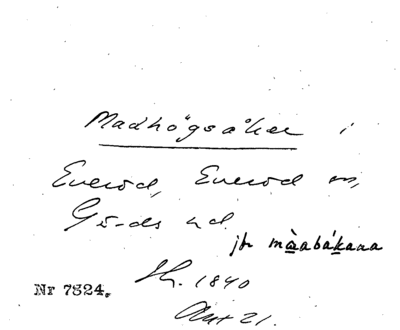 Madhögsåker i
Everöd, Everöd sn,
Gärds hd.
jfr màabákaaa
Sk. 1840
Nr 7324.
Akt 21.